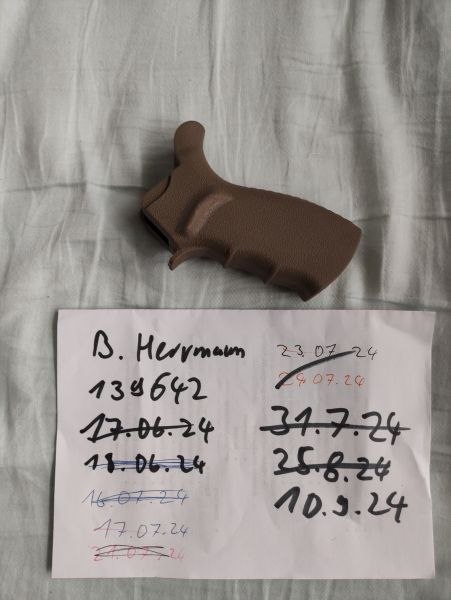 B. Herrmann
139642
17.06.24
18.06.24
16.07.24
17.07.24
21.07.24
23.07.24
24.07.24
31.7.24
25.8.24
10.9.24